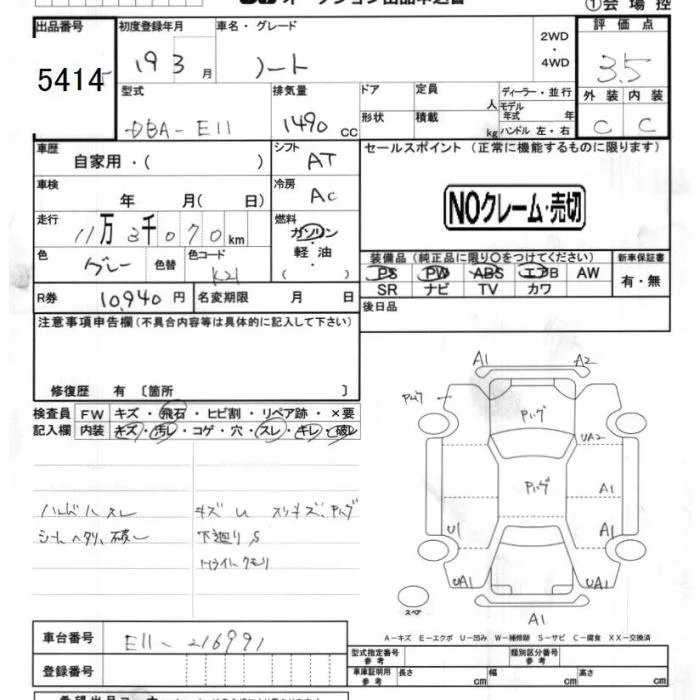 オークション出品申込書
①会場控
出品番号 初度登録年月 車名・グレード 評価点
5414 19 3 月 ノート 2WD・4WD 3.5
型式 排気量 ドア 定員 人 ディーラー・並行 外装 内装
DBA-E11 1490 cc 形状 積載 kg モデル年式 年 C C
ハンドル 左・右
車歴 シフト セールスポイント(正常に機能するものに限ります)
自家用・( ) AT
車検 年 月( 日) 冷房 AC NOクレーム・売切
走行 11万3千070km 燃料 ガソリン・軽油・( )
色 グレー 色替 色コード K21 装備品(純正品に限り〇をつけてください) 新車保証書
PS PW ABS エアB AW 有・無
SR ナビ TV カワ
R券 10,940円 名変期限 月 日 後日品
注意事項申告欄(不具合内容等は具体的に記入して下さい)
修復歴 有〔箇所 〕
検査員 FW キズ・飛石・ヒビ割・リペア跡・×要
記入欄 内装 キズ・汚レ・コゲ・穴・スレ・キレ・破レ
ハンドルスレ キズU スリキズ、Pハゲ
シートヘタリ、破レ 下廻りS
Hライトクモリ
A1 A2
Pハゲ
Pハゲ
UA2
Pハゲ A1
U1 A1
UA1 UA1
スペア A1
A-キズ E-エクボ U-凹み W-補修跡 S-サビ C-腐食 XX-交換済
車台番号 E11-216991
型式指定番号 参考 類別区分番号 参考
登録番号 車庫証明用 参考 長さ cm 幅 cm 高さ cm